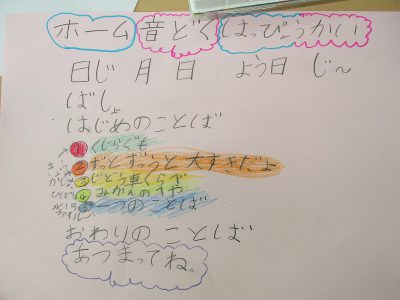 ホーム音どくはっぴょうかい
日じ 月 日 よう日 じ〜
ばしょ
はじめのことば
① くじらぐも
② ずっとずうっと大すきだよ
③ じどう車くらべ
④ みかんのへや
⑤ 一つのことば
おわりのことば
あつまってね。